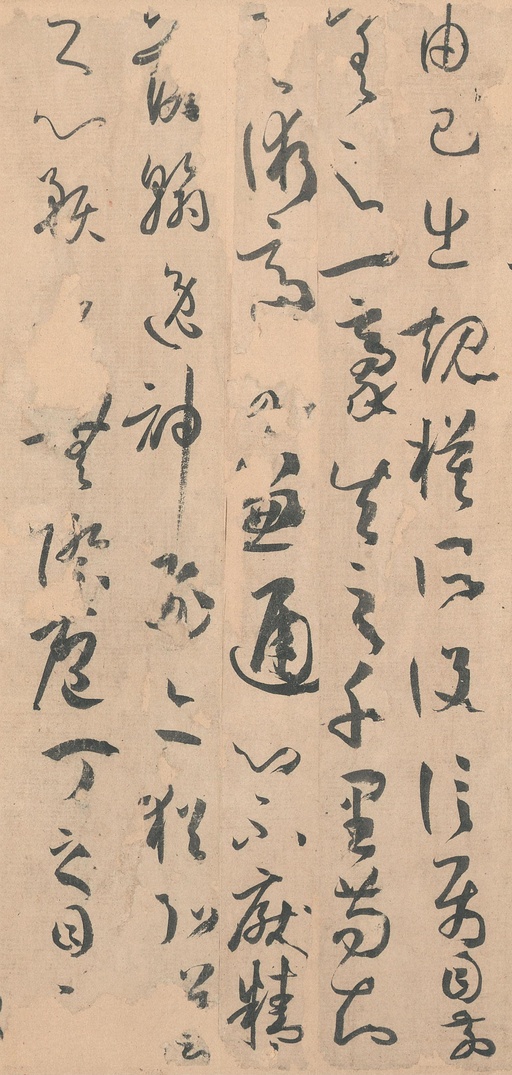 由己出規模所設信屬目前
差之一豪失之千里苟知
術適兼通心不厭精
落翰逸神飛亦猶弘
之心預無際庖丁之目